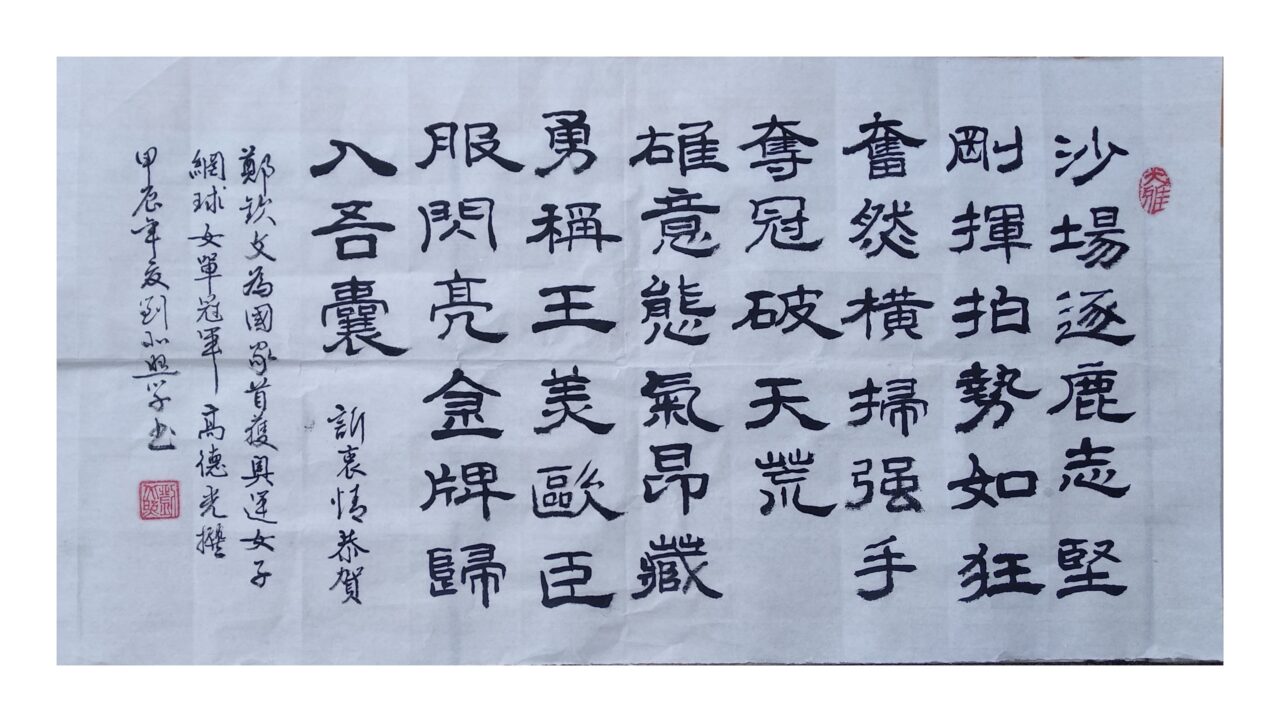 大雅
沙場逐鹿志堅
剛揮拍勢如狂
奮然橫掃强手
奪冠破天荒
雄意態氣昂藏
勇稱王美歐臣
服閃亮金牌歸
入吾囊 訴衷情恭賀
鄭欽文為國家首獲奧運女子
網球女單冠軍 高德光撰
甲辰年夏劉 照學書